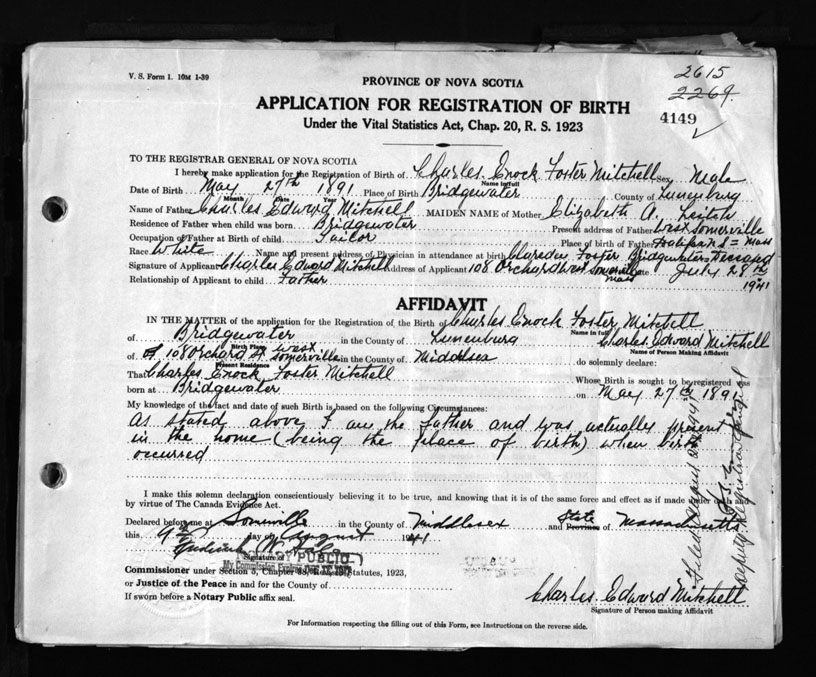 V. S. Form 1. 10M 1-39
2615
2269
4149
PROVINCE OF NOVA SCOTIA
APPLICATION FOR REGISTRATION OF BIRTH
Under the Vital Statistics Act, Chap. 20, R. S. 1923
TO THE REGISTRAR GENERAL OF NOVA SCOTIA
I hereby make application for the Registration of Birth of Charles Enock Foster Mitchell Sex Male
Name in full
Date of Birth May 27th 1891 Place of Birth Bridgewater County of Lunenburg
Month Date Year
Name of Father Charles Edward Mitchell MAIDEN NAME of Mother Elizabeth A. Leitch
Residence of Father when child was born Bridgewater Present address of Father West Somerville
Occupation of Father at Birth of child Tailor Place of birth of Father Halifax N S = Mass
Race White Name and present address of Physician in attendance at birth Foster Bridgewater Deceased
Signature of Applicant Charles Edward Mitchell Address of Applicant 108 Orchard West Somerville Mass Date July 28th 1941
Relationship of Applicant to child Father
AFFIDAVIT
IN THE MATTER of the application for the Registration of the Birth of Charles Enock Foster Mitchell
Name in full
of Bridgewater in the County of Lunenburg Charles Edward Mitchell
Birth Place Name of Person Making Affidavit
of 108 Orchard St West Somerville in the County of Middlesex do solemnly declare:
Present Residence
That Charles Enock Foster Mitchell Whose Birth is sought to be registered was
born at Bridgewater on May 27th 1891
My knowledge of the fact and date of such Birth is based on the following Circumstances:
As stated above I am the father and was actually present
in the home (being the place of birth) when birth
occurred
I make this solemn declaration conscientiously believing it to be true, and knowing that it is of the same force and effect as if made under oath and
by virtue of The Canada Evidence Act.
Declared before me at Somerville in the County of Middlesex and State Province of Massachusetts
this 9th day of August 1941
Signature of
NOTARY PUBLIC
My Commission Expires
Commissioner under Section 3, Chapter 38, Revised Statutes, 1923,
or Justice of the Peace in and for the County of
If sworn before a Notary Public affix seal.
Charles Edward Mitchell
Signature of Person making Affidavit
For Information respecting the filling out of this Form, see Instructions on the reverse side.
Deputy Registrar General